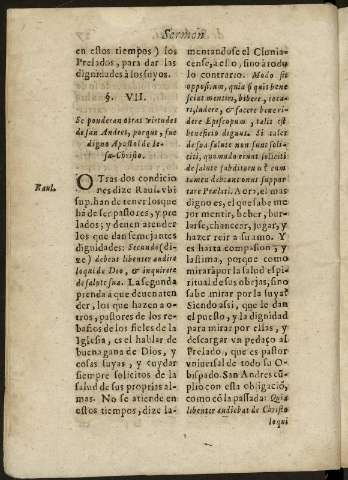 Sermón
en estos tiempos) los
Prelados, para dar las
dignidades à los suyos.
§. VII.
Se ponderan otras virtudes
de san Andres, porque, fue
digno Apostol de Ie-
su-Christo.
Raul.
OTras dos condicio
nes dize Raul. vbi
sup. han de tener los que
há de ser pastores, y pre
lados; y deuen atender
los que dan semejantes
dignidades: Secundo (di-
ze) debeat libenter audire
loqui de Deo, & inquirere
de salute sua. La segunda
prenda à que deuen aten
der, los que hazen a o-
tros, pastores de los re-
baños de los fieles de la
Iglesia, es el hablar de
buena gana de Dios, y
cosas suyas, y cuydar
siempre solicitos de la
salud de sus proprias al-
mas. No se atiende en
estos tiempos, dize la-
mentandose el Clunia-
cense, à esto, sino à todo
lo contrario. Modo fit
oppositum, quia si quis bene
sciat mentiri, bibere, ioca-
ri, ludere, & facere bene ri-
dere Episcopum, talis est
beneficio dignus. Si tales
de sua salute non sunt soli-
citi, quomodo erunt soliciti
de salute subditorum? cum
tamen debeant onus suppor
tare Prælati. Aora, el mas
digno es, el que sabe me
jor mentir, beber, bur-
larse, chancear, jugar, y
hazer reir a su amo. Y
es harta compasion, y
lastima, porque como
mirarà por la salud espi-
ritual de sus obejas, si no
sabe mirar por la suya?
Siendo assi, que le dan
el puesto, y la dignidad
para mirar por ellas, y
descargar vn pedaço al
Prelado, que es pastor
vniuersal de todo su O-
bispado. San Andres cú-
plio con esta obligació,
como có la passada: Quia
libenter audiebat de Christo
loqui